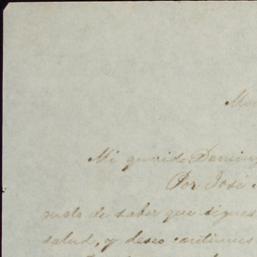 Mi querido Doming
Por José
gusto de saber que sigues
salud, y deseo continues